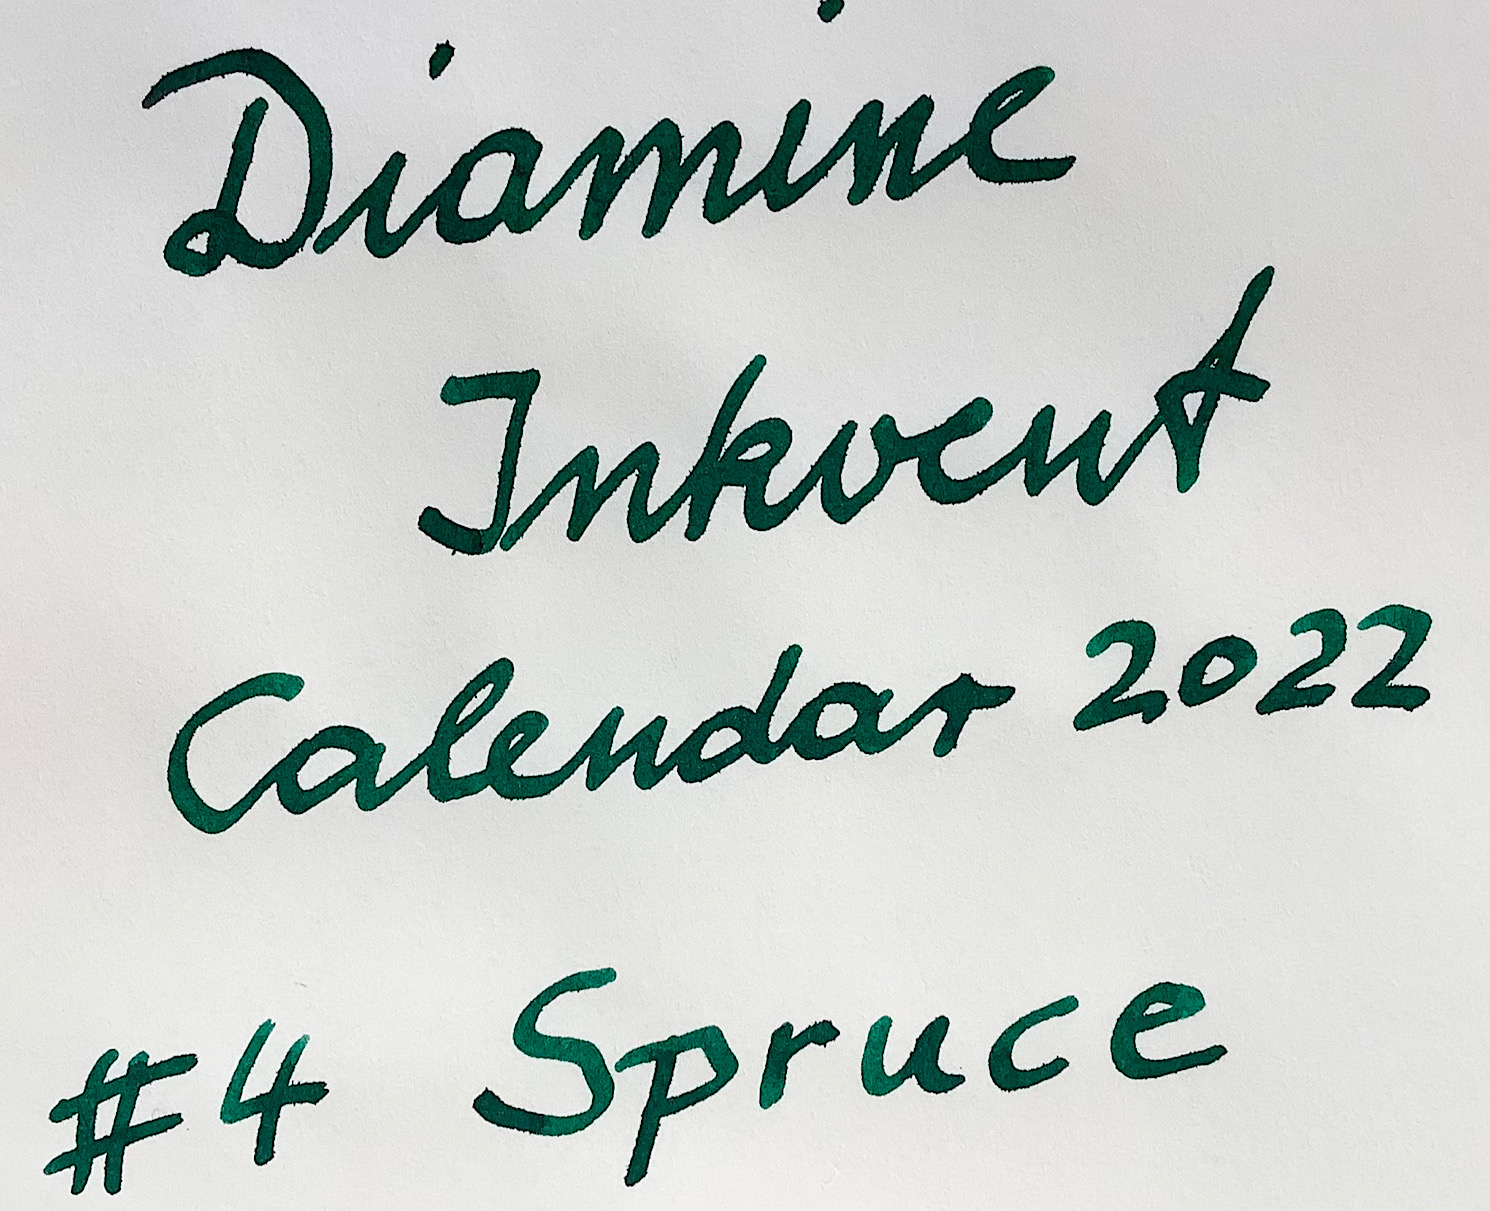 Diamine
Inkvent
Calendar 2022
#4 Spruce